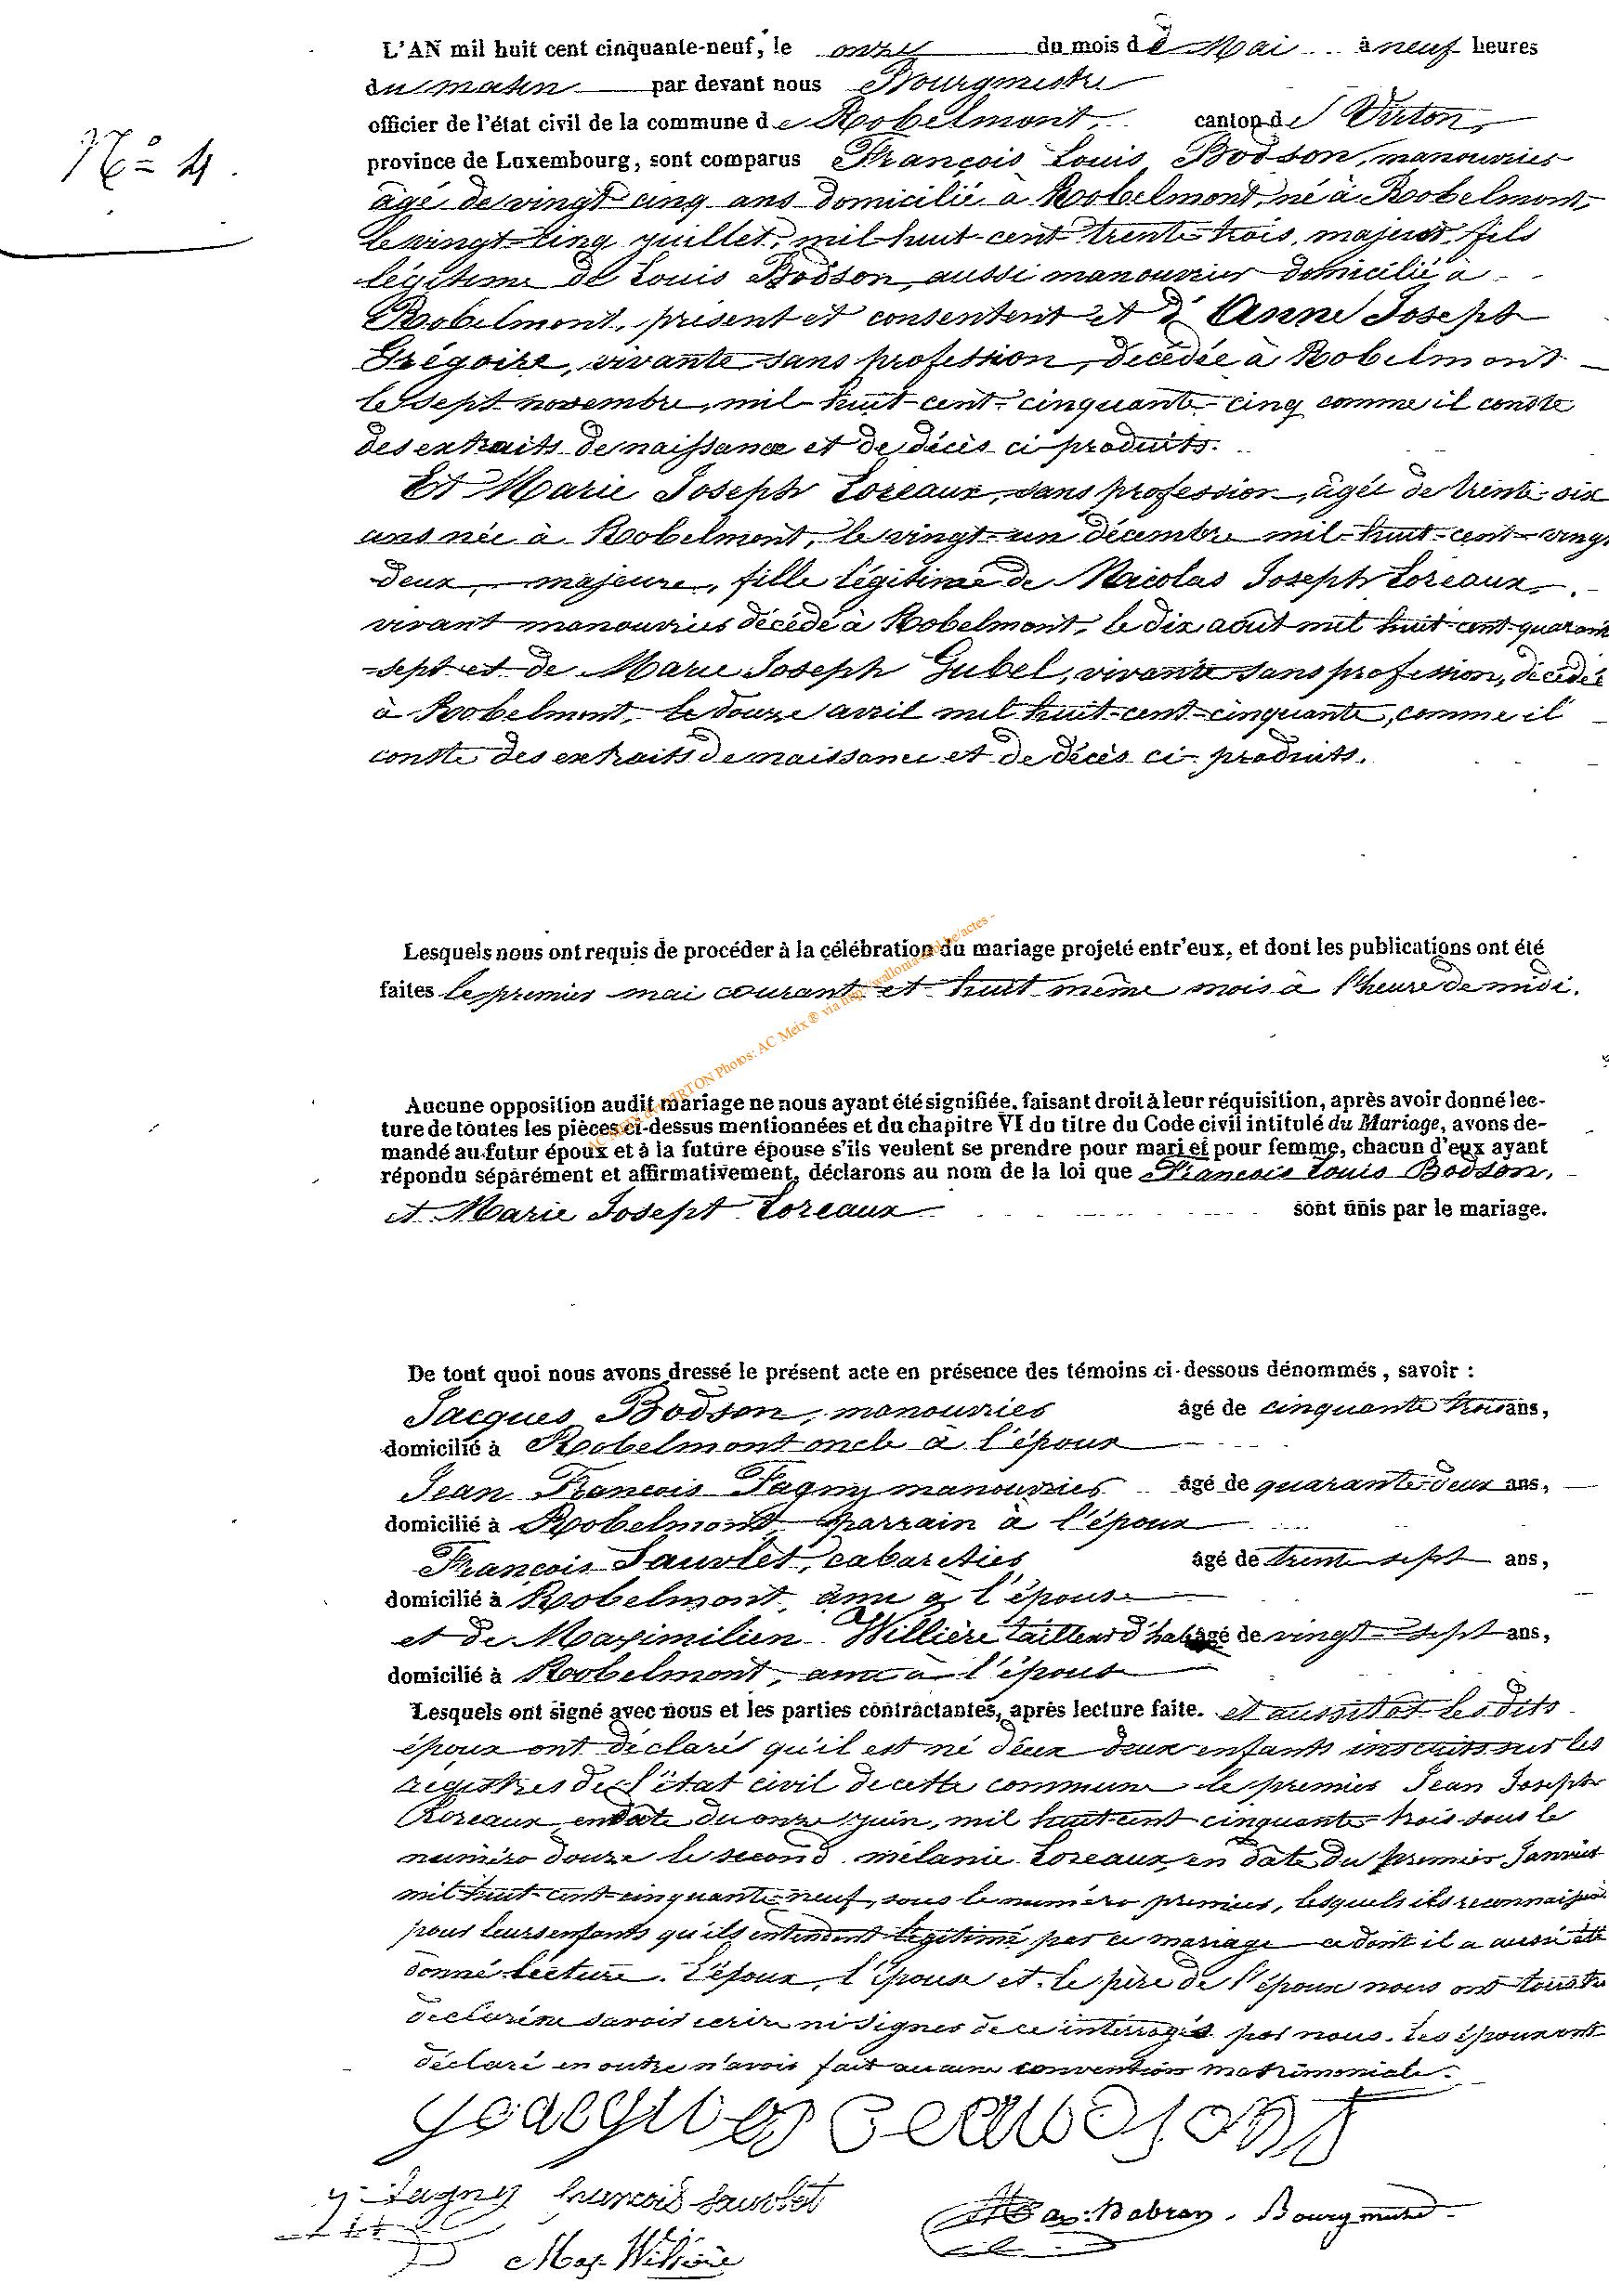 L'AN mil huit cent cinquante-neuf, le onze du mois de Mai à neuf heures
du matin par devant nous Bourgmestre
officier de l'état civil de la commune de Robelmont, canton de Virton,
province de Luxembourg, sont comparus François Louis Bodson, manouvrier
âgé de vingt cinq ans domicilié à Robelmont, né à Robelmont,
le vingt-cinq juillet, mil-huit-cent trente trois, majeur, fils
légitime de Louis Bodson, aussi manouvrier domicilié à
Robelmont, présent et consentent et d'Anne Joseph
Grégoire, vivante sans profession, décédée à Robelmont
le sept novembre, mil-huit-cent-cinquante-cinq comme il conste
des extraits de naissance et de décès ci-produits.
Et Marie Joseph Loreaux, sans profession, âgée de trente-six
ans née à Robelmont, le vingt-un décembre mil-huit-cent-vingt
deux, majeure, fille légitime de Nicolas Joseph Loreaux,
vivant manouvrier décédé à Robelmont, le dix août mil huit-cent-quarante
-sept et de Marie Joseph Gubel, vivante sans profession, décédée
à Robelmont, le douze avril mil huit-cent-cinquante, comme il
conste des extraits de naissance et de décès ci-produits.
N° 4.
Lesquels nous ont requis de procéder à la célébration du mariage projeté entr'eux, et dont les publications ont été
faites le premier mai courant et huit même mois à l'heure de midi.
Photos: AC Meix ® via
Aucune opposition audit mariage ne nous ayant été signifiée, faisant droit à leur réquisition, après avoir donné lec-
ture de toutes les pièces ci-dessus mentionnées et du chapitre VI du titre du Code civil intitulé du Mariage, avons de-
mandé au futur époux et à la future épouse s'ils veulent se prendre pour mari et pour femme, chacun d'eux ayant
répondu séparément et affirmativement, déclarons au nom de la loi que François Louis Bodson,
et Marie Josept Loreaux sont unis par le mariage.
De tout quoi nous avons dressé le présent acte en présence des témoins ci-dessous dénommés, savoir :
Jacques Bodson, manouvrier âgé de cinquante trois ans,
domicilié à Robelmont oncle à l'époux
Jean François Fagny manouvrier âgé de quarante-deux ans,
domicilié à Robelmont parrain à l'époux
François Sauvlet, cabaretier âgé de trente sept ans,
domicilié à Robelmont, ami à l'épouse
et de Maximilien Willière tailleur d'habi âgé de vingt-sept ans,
domicilié à Robelmont, ami à l'épouse
Lesquels ont signé avec nous et les parties contractantes, après lecture faite. et aussitot les dits
époux ont déclaré qu'il est né d'eux deux enfants inscrits sur les
registres de l'état civil de cette commune le premier Jean Joseph
Loreaux en date du onze juin, mil huit cent cinquante-trois sous le
numéro douze le second mélanie Loreaux en date du premier Janvier
mil huit-cent-cinquante-neuf, sous le numéro premier, lesquels ils reconnaissent
pour leurs enfants qu'ils entendent légitimé par ce mariage ce dont il a aussi été
donné lecture. L'époux, l'épouse et le père de l'époux nous ont tous trois
déclaré ne savoir écrire ni signer de ce interrogés par nous. Les époux ont
déclaré en outre n'avoir fait aucune convention matrimoniale.
Fagny françois Sauvlet
Max. Willière Bourgmestre